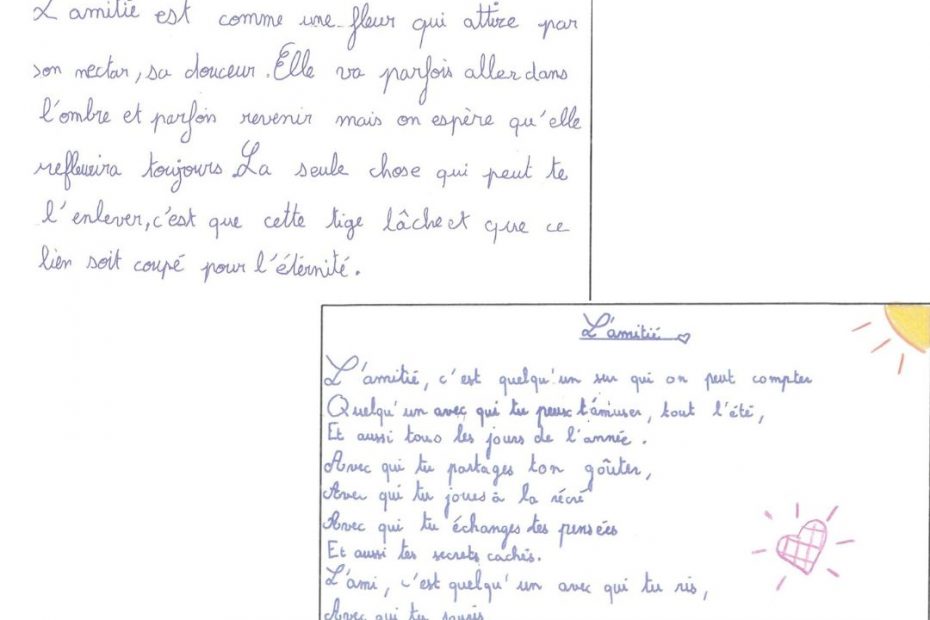 L'amitié est comme une fleur qui attire par
son nectar, sa douceur. Elle va parfois aller dans
l'ombre et parfois revenir mais on espère qu'elle
refleurira toujours La seule chose qui peut te
l'enlever, c'est que cette tige lâche et que ce
lien soit coupé pour l'étérnité.
L'amitié
L'amitié, c'est quelqu'un sur qui on peut compter
Quelqu'un avec qui tu peux t'amuser, tout l'été,
Et aussi tous les jours de l'année.
Avec qui tu partages ton goûter,
Avec qui tu joues à la récré
Avec qui tu échanges tes pensées
Et aussi tes secrets cachés.
L'ami, c'est quelqu'un avec qui tu ris,
Avec qui tu souris